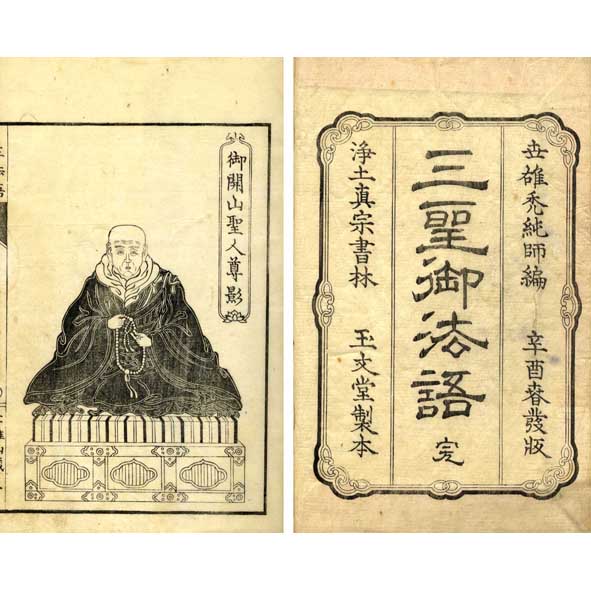 世雄禿純師編　辛酉春發版
三聖御法語 完
淨土真宗書林　玉文堂製本
御開山聖人尊影